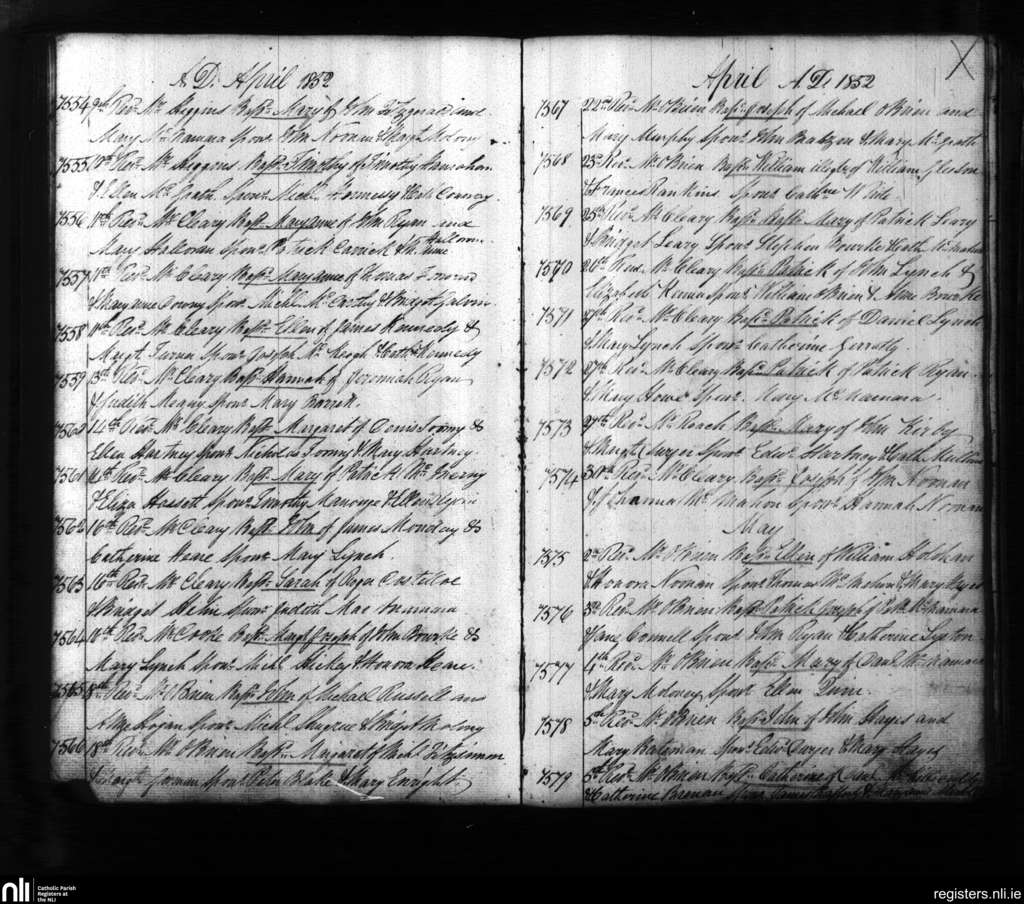 A.D. April 1852
7554 9th Revd. Mr. Higgins Baptd. Mary of John Fitzgerald and
Mary McNamara Spons. John Noonan & Margt. Molony
7555 Revd. Mr. Higgins Baptd. Timothy of Timothy
& Ellen McGrath Spons. Michl. Hennessy & Cath. Conway
7556 11th Revd. Mr. Cleary Baptd. Maryanne of John Ryan and
Mary Halloran Spons. Patrick Carrick & Halloran
7557 11th Revd. Mr. Cleary Baptd. Maryanne of Thomas
& Maryanne Downy Spons. Michl. McCarthy & Bridget Galvin
7558 11th Revd. Mr. Cleary Baptd. Ellen of James Kennedy &
Margt. Spons. Joseph McKeogh & Cathe. Kennedy
7559 13th Revd. Mr. Cleary Baptd. Hannah of Jeremiah Ryan
& Judith Meany Spons. Mary Barrett.
7560 14th Revd. Mr. Cleary Baptd. Margaret of Denis &
Ellen Hartney Spons. Nicholas & Mary Hartney.
7561 Revd. Mr. Cleary Baptd. Mary of Patrick
& Eliza Hassett Spons. Timothy & Ellen
7562 16th Revd. Mr. Cleary Baptd. John of James Monday &
Catherine Heare Spons. Mary Lynch.
7563 16th Revd. Mr. Cleary Baptd. Sarah of Roger Costelloe
& Bridget Spons. Judith Mac Namara
7564 Revd. Mr. Cooke Baptd. Joseph of John Bourke &
Mary Lynch Spons. Michl. Hickey & Honora Heare.
7565 18th Revd. Mr. OBrien Baptd. John of Michael Russell and
Hogan Spons. Michl. & Bridget Molony
7566 18th Revd. Mr. OBrien Baptd. Margaret of Michl. Fitzsimon
& Margt. Gorman Spons. Peter Blake & Mary Enright.
April A.D. 1852
7567 22nd Revd. Mr. OBrien Baptd. Joseph of Michael OBrien and
Mary Murphy Spons. John & Mary McGrath
7568 25th Revd. Mr. OBrien Baptd. William illegt. of William Gleeson
& Frances Rankins Spons. Cathne. White.
7569 25th Revd. Mr. Cleary Baptd. Mary of Patrick Lary
& Bridget Leary Spons. Stephen Bourke & Cath. McMahon
7570 26th Revd. Mr. Cleary Baptd. Patrick of John Lynch &
Elizabeth Spons. William OBrien & Bourke
7571 27th Revd. Mr. Cleary Baptd. Patrick of Daniel Lynch
& Mary Lynch Spons. Catherine Gerratty
7572 27th Revd. Mr. Cleary Baptd. Patrick of Patrick Ryan
& Mary Howe Spons. Mary McNamara.
7573 27th Revd. Mr. Roach Baptd. Mary of John Kirby
& Margt. Dwyer Spons. Edwd. Hartney & Cath.
7574 30th Revd. Mr. Cleary Baptd. Joseph of John Noonan
& Johanna McMahon Spons. Hannah Noonan
May
7575 2nd Revd. Mr. OBrien Baptd. Ellen of William
& Honora Noonan Spons. Thomas McMahon & Mary Hayes
7576 3rd Revd. Mr. OBrien Baptd. Patrick Joseph of McNamara
& Jane Connell Spons. John Ryan & Catherine Lyston.
7577 4th Revd. Mr. OBrien Baptd. Mary of Danl. McNamara
& Mary Moloney Spons. Ellen Dunn.
7578 5th Revd. Mr. OBrien Baptd. John of John Hayes and
Mary Bateman Spons. Edwd. Dwyer & Mary Hayes
7579 5th Revd. Mr. OBrien Baptd. Catherine of
& Catherine Brenan Spons. James & Maryanne
nli
Catholic Parish
Registers at
the NLI
registers.nli.ie